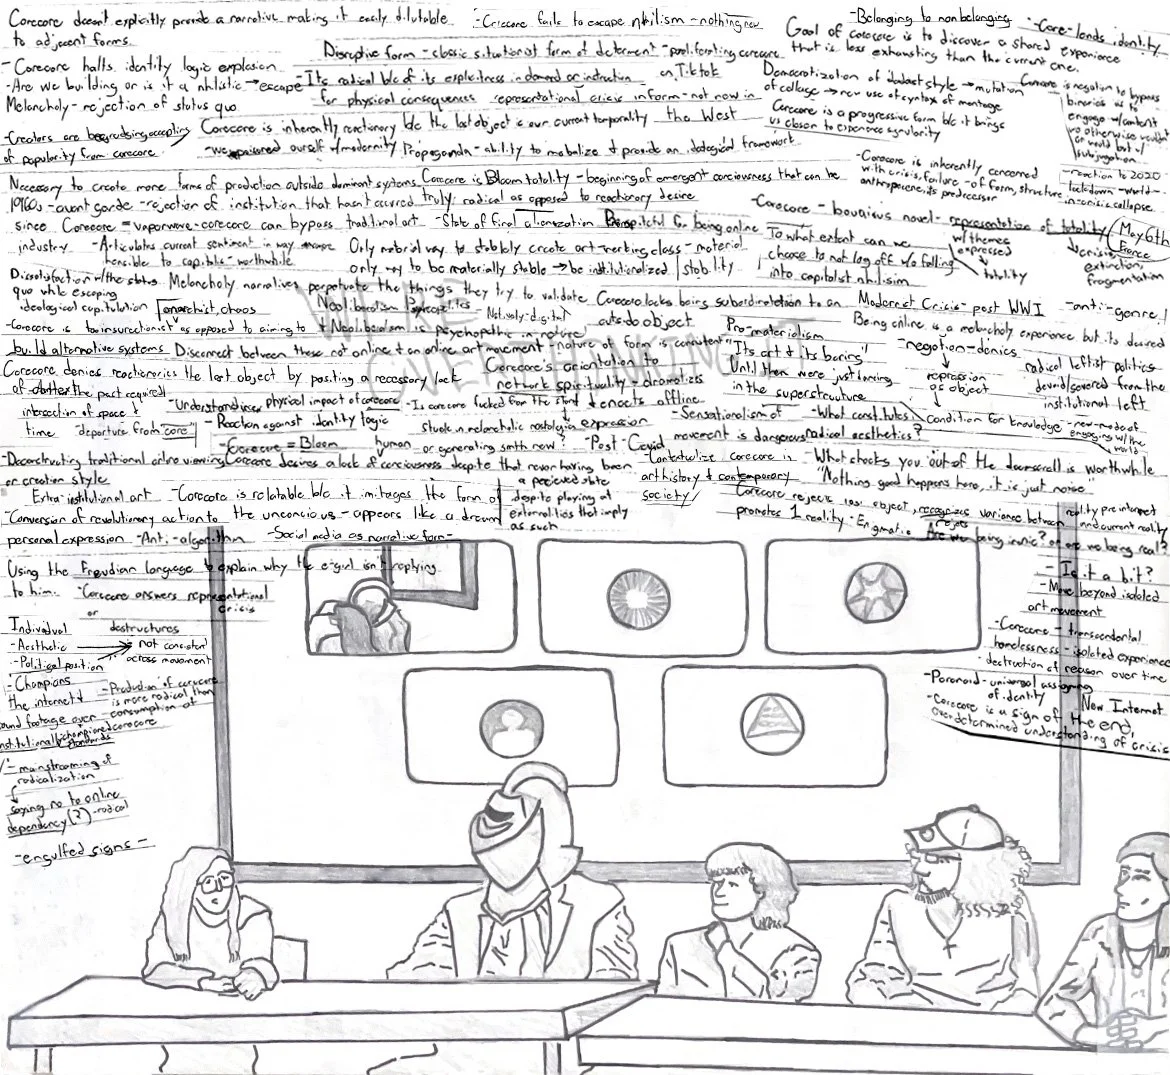 Corecore doesn't explicitly provide a narrative making it easily dilutable
to adjacent forms.
-Corecore fails to escape nihilism -nothing new
-Belonging to non belonging
-Core-lends identity
Goal of corecore is to discover a shared experience
that is less exhausting than the current one.
Disruptive form -classic situationist form of -proliferating corecore
on TikTok
-Corecore halts identity logic explosion
-Are we building or is it a nihilistic →escape
Melancholy - rejection of status quo
-Its radical b/c of its explicitness in demand or instruction
for physical consequences representational crisis in form -not now in
the West
Democratization of style → mutation
of collage → new use of syntax of montage
Corecore is a progressive form b/c it brings
us closer to experience singularity
Corecore is negation to bypass
binaries as to
engage w/content
-reaction to 2020
lockdown -world
in crisis collapse.
-Creators are accepting
of popularity from corecore
Corecore is inherently reactionary b/c the lost object is our current temporality
-we poisoned ourself w/modernity Propaganda - ability to mobalize & provide an idological framework
-Corecore is inherently concerned
with crisis, failure - of form, structure
anthropocene, its predecessor
Necessary to create more forms of production outside dominant systems
Corecore is Bloom totality - beginning of emergent conciousness that can be
truly radical as opposed to reactionary desire
1960s -avant garde -rejection of institution that hasn't occurred
since Corecore = vaporwave -corecore can bypass traditional art
industry
-State of final alienation
for being online
-Corecore - novel -representation of totality
w/themes
expressed
↘ totality
May 6th
France
↓
crisis,
extinction,
fragmentation
-Articulates current sentiment in way
to capitalis -worthwhile
Only material way to stabaly create art -working class - material
only way to be materially stable → be institutionalized stability
To what extent can we
choose to not log off w/o falling
into capitalist nihilism
Dissatisfaction w/the status
quo while escaping
ideological capitulation
anarchist, chaos
Melancholy narratives perpetuate the things they try to validate
WE'RE
OVERTHINKING IT
Neoliberalism
& Neoliberalism is psychopathic in nature
Natively-digital
Corecore lacks being subordination to an
outside object
Modernist Crisis - post WWI
-anti-genre!
Being online is a melancholy experience but its desired
-Corecore is insurectionist as opposed to aiming to
build alternative systems
Disconnect between those not online & an online art movement -nature of form is concurrent
Pro-materialism
"Its art & its boring"
Until then were just dancing
in the superstructure
-negation-denies
↓
repression
of object
radical leftist politics
devoid/severed from the
institutional left
Corecore denies reactionaries the lost object by positing a necessary lack
Corecore's orientation to
network spirituality - dramatizes
& enacts offline
expression
intersection of space &
time "departure from core"
-Understand physical impact of corecore
-Reaction against identity logic
-Corecore = Bloom
human
-Is corecore fucked from the start
stuck in melancholic nostalgia
or generating smth new?
-Sensationalism of
movement is dangerous
-Post-Covid
-What constitutes
radical aesthetics?
condition for knowledge -new-mode of
engaging w/the
world-
-Deconstructing traditional online viewing
or creation style
Corecore desires a lack of conciousness despite that never having been
a percieved state
despite playing at
externalities that imply
as such
-Contextualize corecore in
art history & contemporary
society
-What shocks you out of the doomscroll is worthwhile
"Nothing good happens here, it is just noise"
Extra-institutional art
-Corecore is relatable b/c it mitages the form of
the unconcious - appears like a dream
-Conversion of revolutionary action to
personal expression
-Anti-algorithm
-Social media as narrative form-
Corecore rejects lost object, recognizes variance between
promotes 1 reality - Enigmatic
reality pre internet
and current reality
Are we being ironic? or are we being real?
- Is it a bit?
-Move beyond isolated
art movement
Using the Freudian language to explain why the e-girl isn't replying
to him.
-Corecore answers representational
crisis
or
destructures
Individual
-Aesthetic
-Political position
→ not consistent
across movement
-Champions
the internet &
found footage over
institutionally championed
standards
-Production of corecore
is more radical than
consumption of
corecore
-mainstreaming of
radicalization
↓
saying no to online
dependency (?) -radical
-engulfed signs-
-Corecore - transcendental
homelessness - isolated experience
- destruction of reason over time
-Paranoid - universal assigning
of identity
New Internet
-Corecore is a sign of the end,
overdetermined understanding of crisis